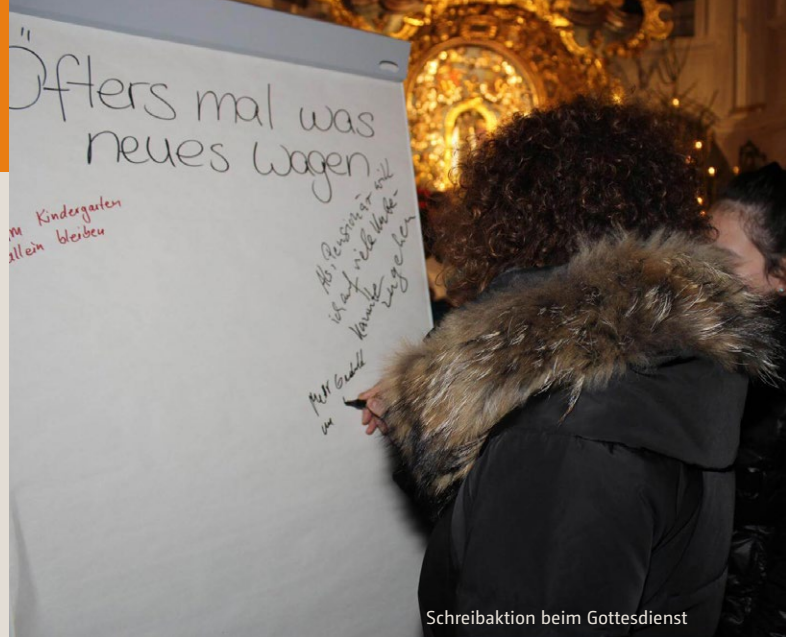 Öfters mal was
neues wagen.
im Kindergarten
allein bleiben
Als Pensionär will
ich auf viele Unbe-
kannte
zugehen
Mehr Geduld
Schreibaktion beim Gottesdienst